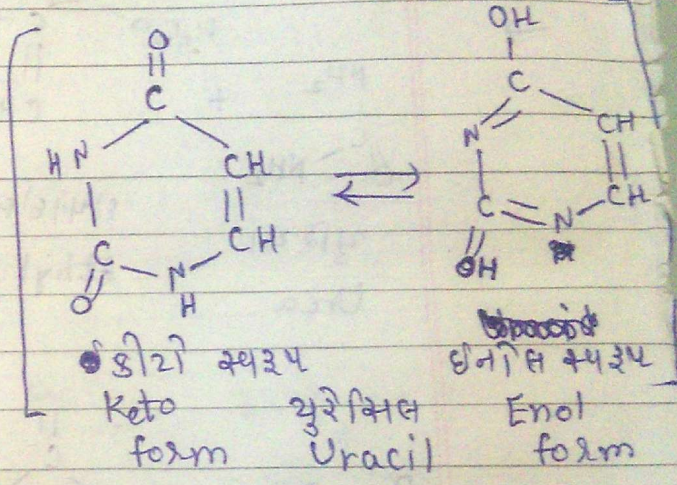 O
C
HN
CH
CH
C
O
N
H
OH
C
N
CH
CH
C
N
OH
કીટો સ્વરૂપ
Keto
form
યુરેસિલ
Uracil
ઇનોલ સ્વરૂપ
Enol
form